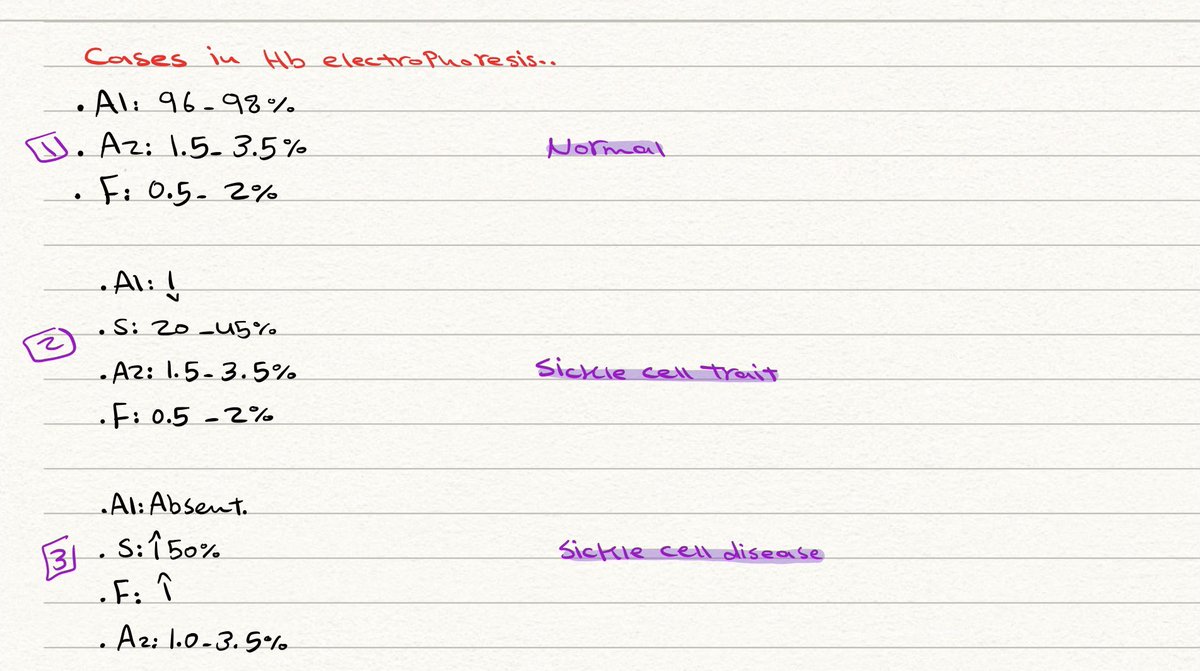 Cases in Hb electrophoresis..
. A1: 96-98%
1 . A2: 1.5-3.5% Normal
. F: 0.5-2%
. A1: ↓
. S: 20-45%
2
. A2: 1.5-3.5% Sickle cell trait
. F: 0.5-2%
. A1: Absent.
3 . S: ↑50% Sickle cell disease
. F: ↑
. A2: 1.0-3.5%